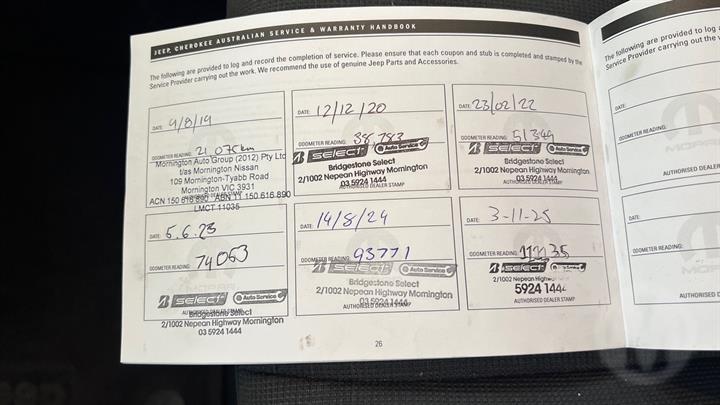 JEEP CHEROKEE AUSTRALIAN SERVICE & WARRANTY HANDBOOK
The following are provided to log and record the completion of service. Please ensure that each coupon and stub is completed and stamped by the
Service Provider carrying out the work. We recommend the use of genuine Jeep Parts and Accessories.
DATE: 9/8/19
ODOMETER READING: 21,075km
Mornington Auto Group (2012) Pty Ltd
t/as Mornington Nissan
109 Mornington-Tyabb Road
Mornington VIC 3931
ACN 150 616 890 ABN 11 150 616 890
LMCT 11035
DATE: 12/12/20
ODOMETER READING: 38,783
B SELECT Auto Service
Bridgestone Select
2/1002 Nepean Highway Mornington
03 5924 1444
AUTHORISED DEALER STAMP
DATE: 23/02/22
ODOMETER READING: 51349
B SELECT Auto Service
Bridgestone Select
2/1002 Nepean Highway Mornington
03 5924 1444
AUTHORISED DEALER STAMP
DATE: 5.6.23
ODOMETER READING: 74063
B SELECT Auto Service
AUTHORISED DEALER STAMP
Bridgestone Select
2/1002 Nepean Highway Mornington
03 5924 1444
DATE: 14/8/24
ODOMETER READING: 93771
B SELECT Auto Service
Bridgestone Select
2/1002 Nepean Highway Mornington
03 5924 1444
AUTHORISED DEALER STAMP
DATE: 3-11-25
ODOMETER READING:
B SELECT Auto Service
2/1002 Nepean Highway Mornington
5924 1444
AUTHORISED DEALER STAMP
26
The following are provided to log
Service Provider carrying out the
DATE:
ODOMETER READING:
MOPAR
AUTHORISED DEALER
DATE:
ODOMETER READING:
MOPAR
AUTHORISED D